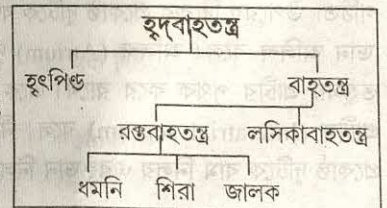 হৃদবাহতন্ত্র
হৃৎপিণ্ড বাহতন্ত্র
রক্তবাহতন্ত্র লসিকাবাহতন্ত্র
ধমনি শিরা জালক